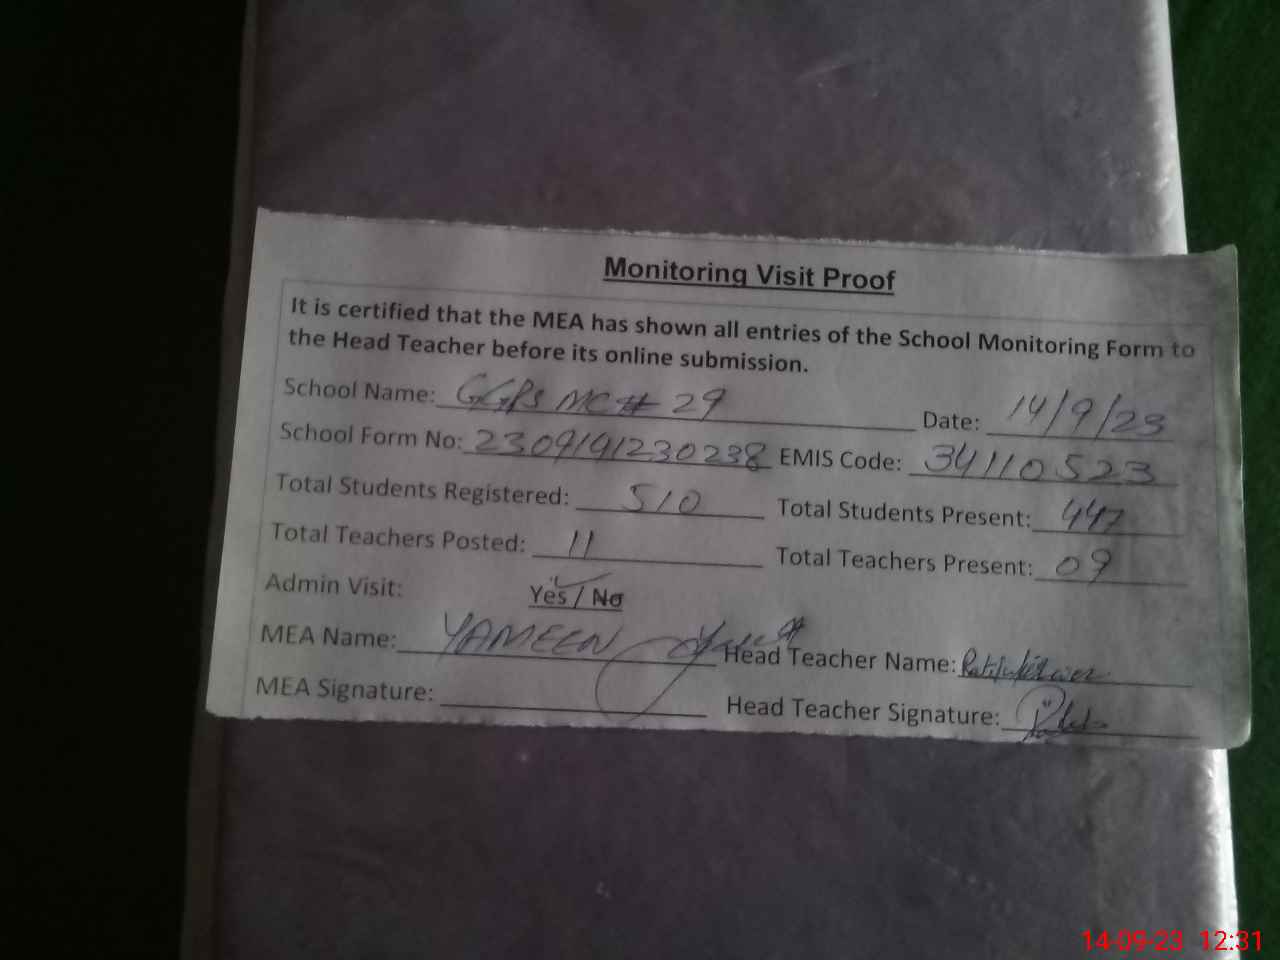 Monitoring Visit Proof
It is certified that the MEA has shown all entries of the School Monitoring Form to
the Head Teacher before its online submission.
School Name: GGPS MC# 29 Date: 14/9/23
School Form No: 2309191230238 EMIS Code: 34110523
Total Students Registered: 510 Total Students Present: 447
Total Teachers Posted: 11 Total Teachers Present: 09
Admin Visit: Yes / No
MEA Name: YAMEEN Head Teacher Name:
MEA Signature: Head Teacher Signature:
14-09-23 12:31